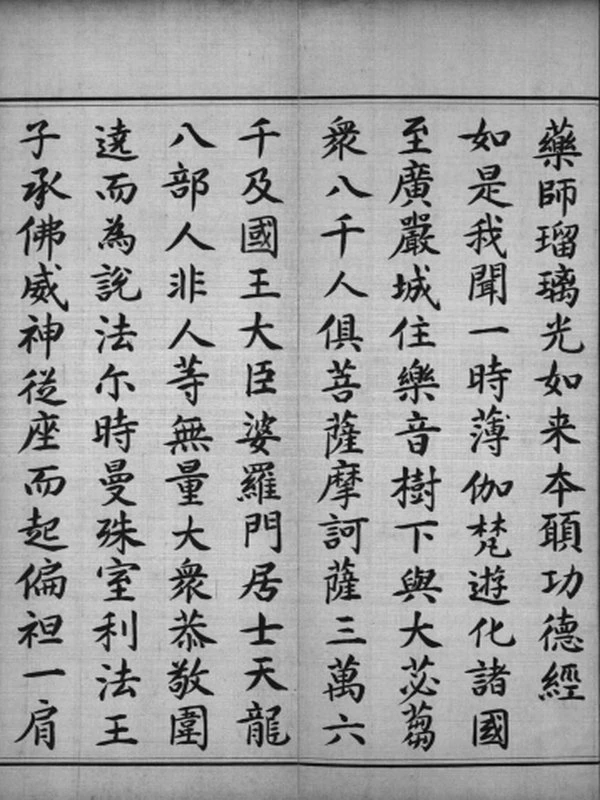 藥師瑠璃光如来本願功德經
如是我聞一時薄伽梵遊化諸國
至廣嚴城住樂音樹下與大苾芻
衆八千人俱菩薩摩訶薩三萬六
千及國王大臣婆羅門居士天龍
八部人非人等無量大衆恭敬圍
遶而為說法尔時曼殊室利法王
子承佛威神從座而起偏袒一肩